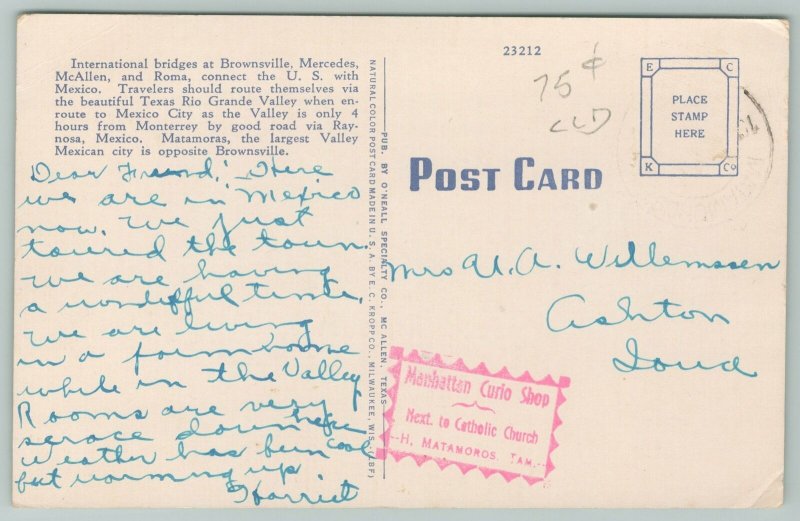 International bridges at Brownsville, Mercedes,
McAllen, and Roma, connect the U. S. with
Mexico. Travelers should route themselves via
the beautiful Texas Rio Grande Valley when en-
route to Mexico City as the Valley is only 4
hours from Monterrey by good road via Ray-
nosa, Mexico. Matamoras, the largest Valley
Mexican city is opposite Brownsville.
Dear Friend; Here
we are in Mexico
now. We just
toured the town.
We are having
a wonderful time.
We are living
in a farm home
while in the Valley
Rooms are very
scarce down here
Weather has been cool
but warming up
Harriet
NATURAL COLOR POST CARD MADE IN U. S. A. BY E. C. KROPP CO., MILWAUKEE, WIS. (LBF)
PUB. BY O'NEALL SPECIALTY CO., MC ALLEN, TEXAS
23212
75¢
POST CARD
E C
PLACE
STAMP
HERE
K Co
Mrs A. A. Willemssen
Ashton
Iowa
Manhattan Curio Shop
Next. to Catholic Church
--H. MATAMOROS. TAM.--